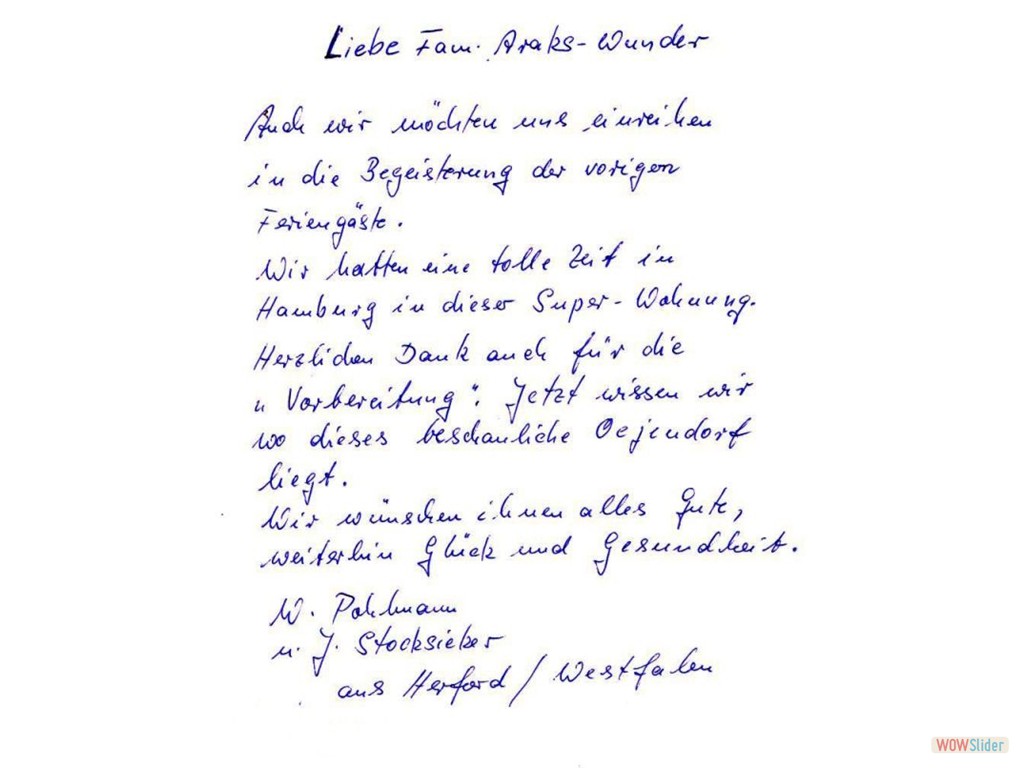 Liebe Fam. Araks-Wunder
Auch wir möchten uns einreihen
in die Begeisterung der vorigen
Feriengäste.
Wir hatten eine tolle Zeit in
Hamburg in dieser Super-Wohnung.
Herzlichen Dank auch für die
"Vorbereitung". Jetzt wissen wir
wo dieses beschauliche Oejendorf
liegt.
Wir wünschen ihnen alles Gute,
weiterhin Glück und Gesundheit.
W. Pohlmann
u. J. Stocksieker
aus Herford / Westfalen
WOWSlider